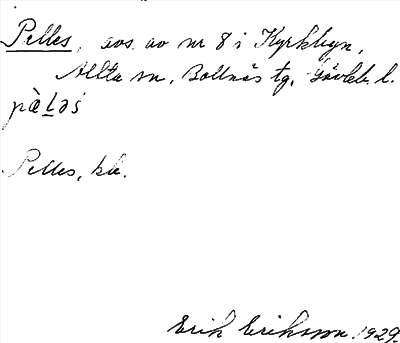 Pelles, avs. av nr 8 i Kyrkbyn,
Alfta sn, Bollnäs tg, Gävleb. l.
pæ̀ḷəs
Pelles, kb.
Erik Eriksson 1929.